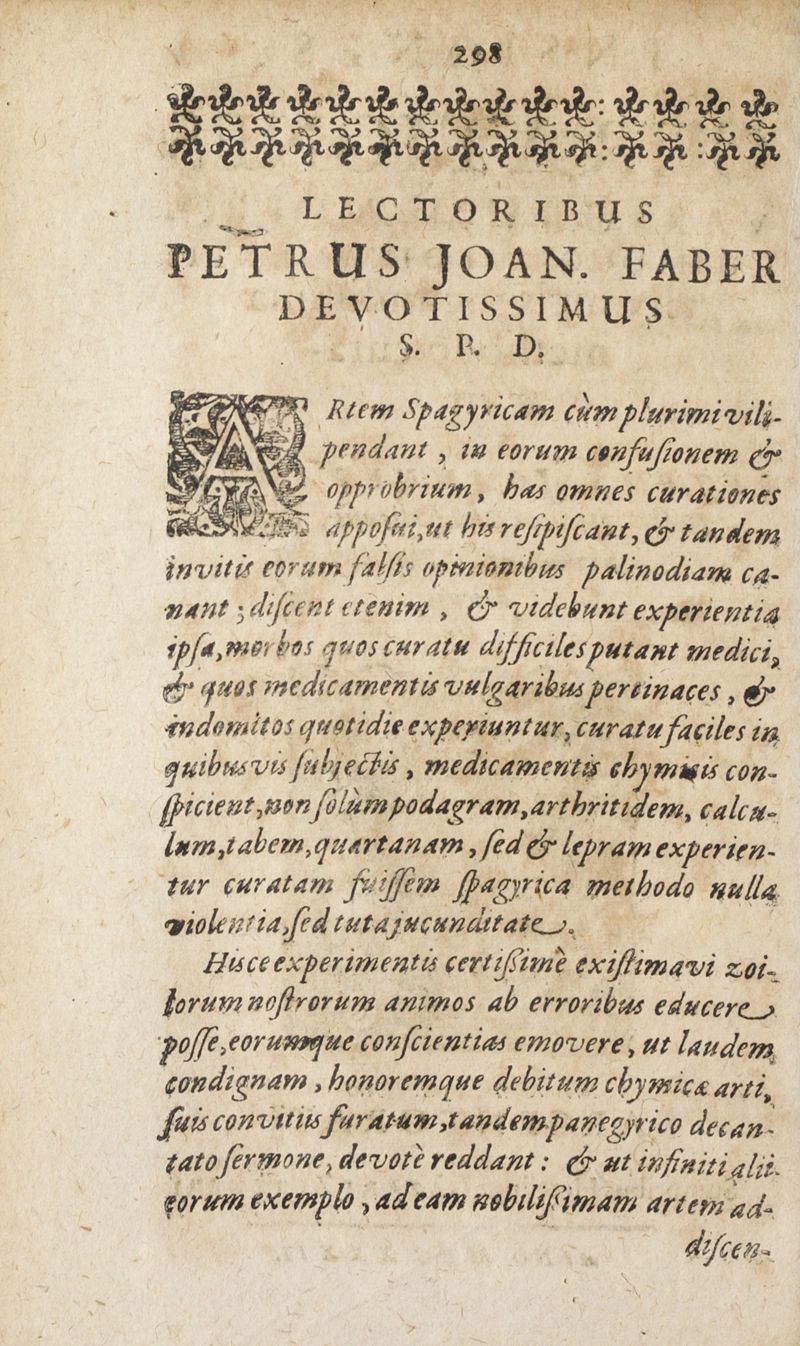 298
LECTORIBUS
PETRUS JOAN. FABER
DEVOTISSIMUS
S. P. D.
ARtem Spagyricam cùm plurimi vili-
pendant, in eorum confuſionem &
opprobrium, has omnes curationes
appoſui, ut his reſipiſcant, & tandem
invitis eorum falſis opinionibus palinodiam ca-
nant; diſcent etenim, & videbunt experientia
ipſa, morbos quos curatu difficiles putant medici,
& quos medicamentis vulgaribus pertinaces, &
indomitos quotidie experiuntur, curatu faciles in
quibusvis ſubjectis, medicamentis chymicis con-
ſpicient, non ſolùm podagram, arthritidem, calcu-
lum, tabem, quartanam, ſed & lepram experien-
tur curatam fuiſſem ſpagyrica methodo nulla
violentia, ſed tuta jucunditate.
Hisce experimentis certiſſimè exiſtimavi zoi-
lorum noſtrorum animos ab erroribus educere
poſſe, eorumque conſcientias emovere, ut laudem
condignam, honoremque debitum chymicæ arti,
ſuis convitiis furatum, tandem panegyrico decan-
tato ſermone, devotè reddant: & ut infiniti alii
eorum exemplo, ad eam nobiliſſimam artem ad-
diſcen-